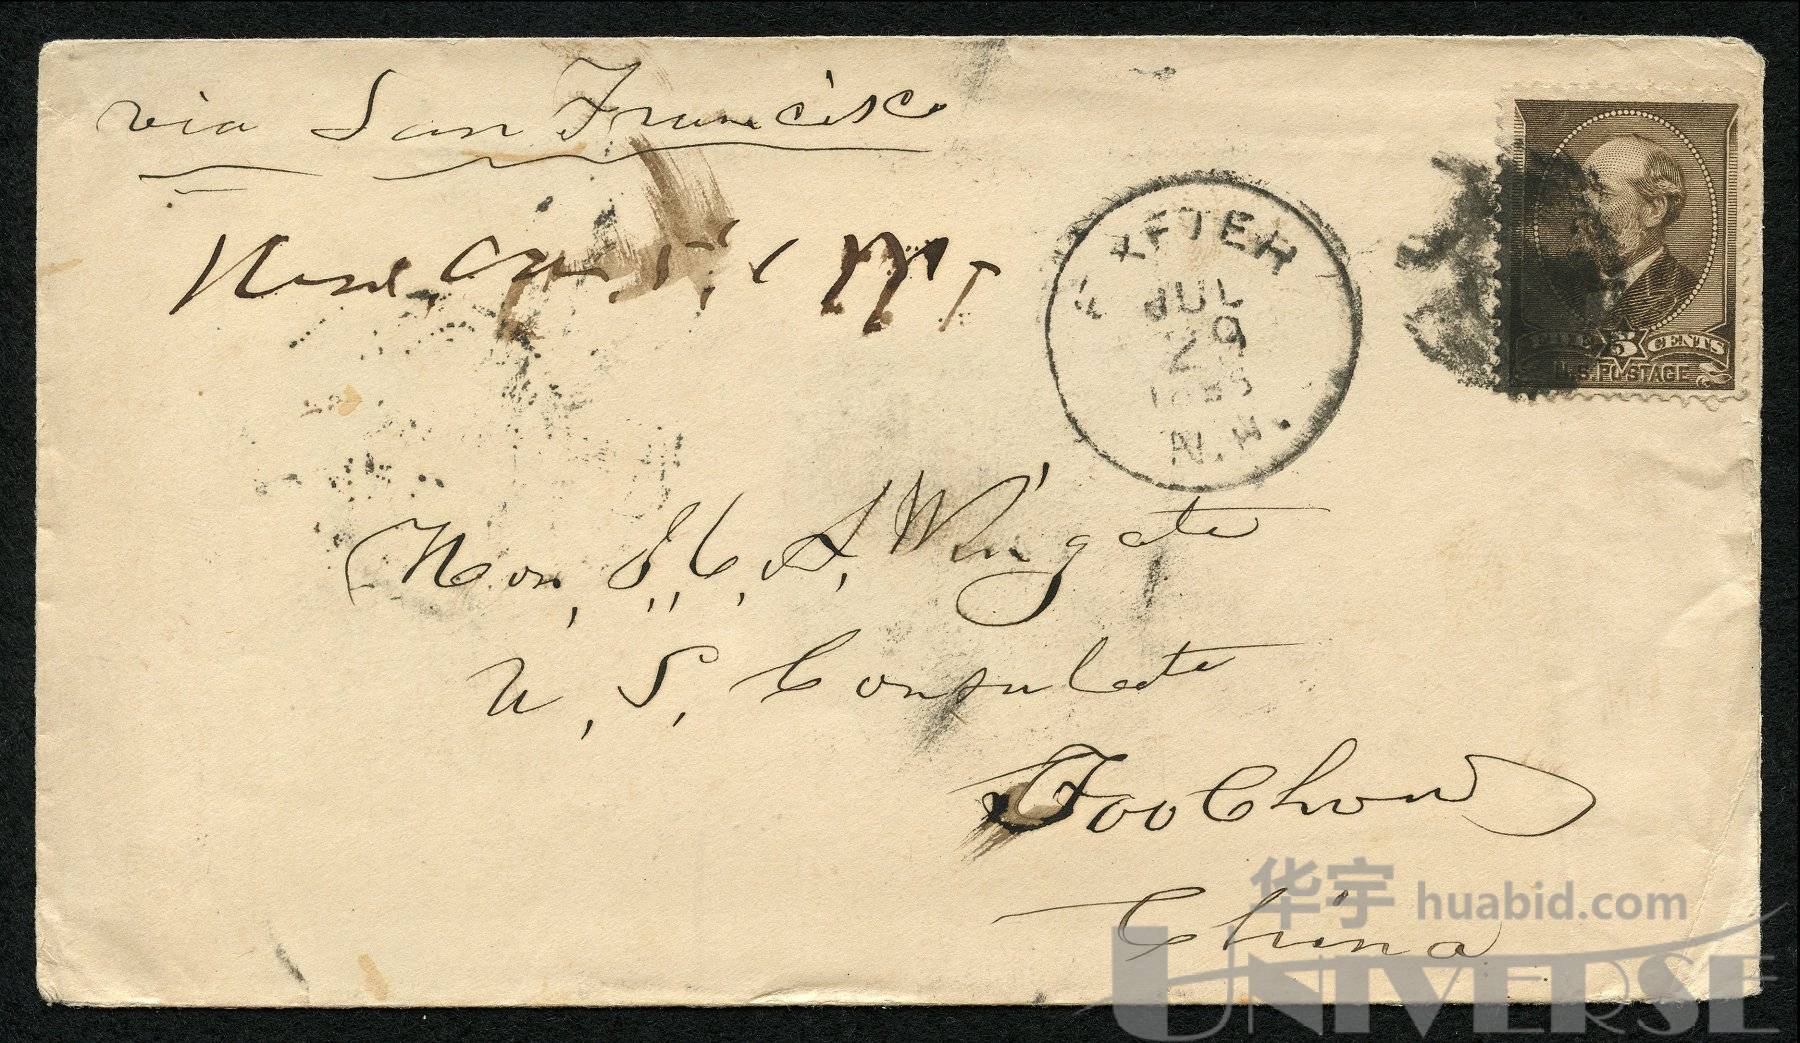 via San Francisco
EXETER
JUL
29
N.H.
FIVE 5 CENTS
U.S. POSTAGE
Hon, J, C, A, Wingate
U, S, Consulate
Foo Chow
China
华宇 huabid.com
UNIVERSE